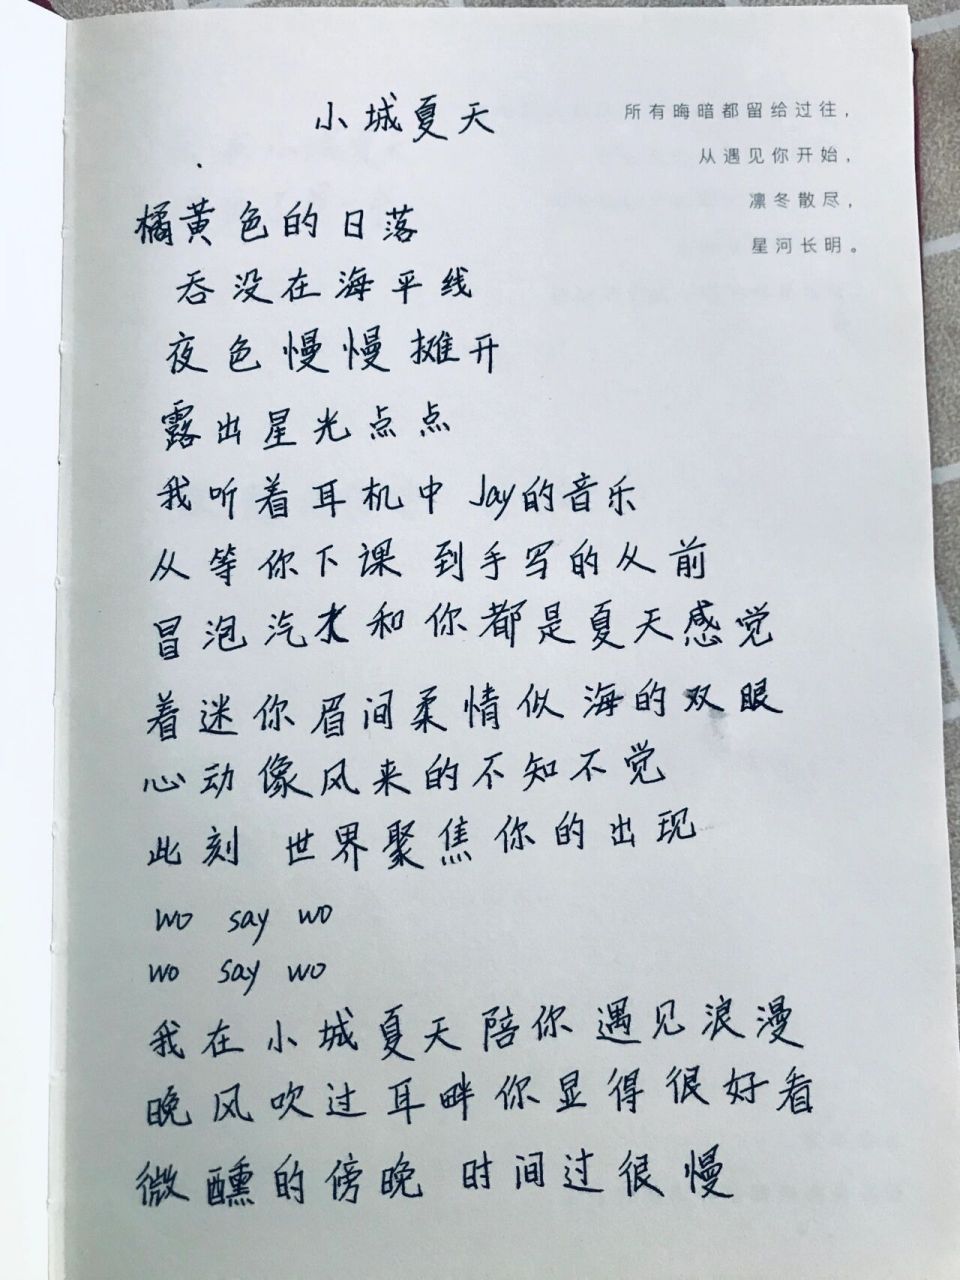 小城夏天
所有晦暗都留给过往，
从遇见你开始，
凛冬散尽，
星河长明。
橘黄色的日落
吞没在海平线
夜色慢慢摊开
露出星光点点
我听着耳机中 Jay的音乐
从等你下课 到手写的从前
冒泡汽水和你都是夏天感觉
着迷你眉间柔情似海的双眼
心动像风来的不知不觉
此刻 世界聚焦你的出现
wo say wo
wo say wo
我在小城夏天陪你遇见浪漫
晚风吹过耳畔你显得很好看
微醺的傍晚 时间过很慢